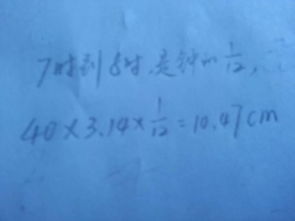 7时到8时是钟的1/12,
40×3.14×1/12=10.47cm